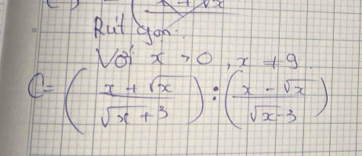 Rút gọn:
Với x > 0, x ≠ 9.
C = ( (x + √x) / (√x + 3) ) : ( (x - √x) / (√x - 3) )